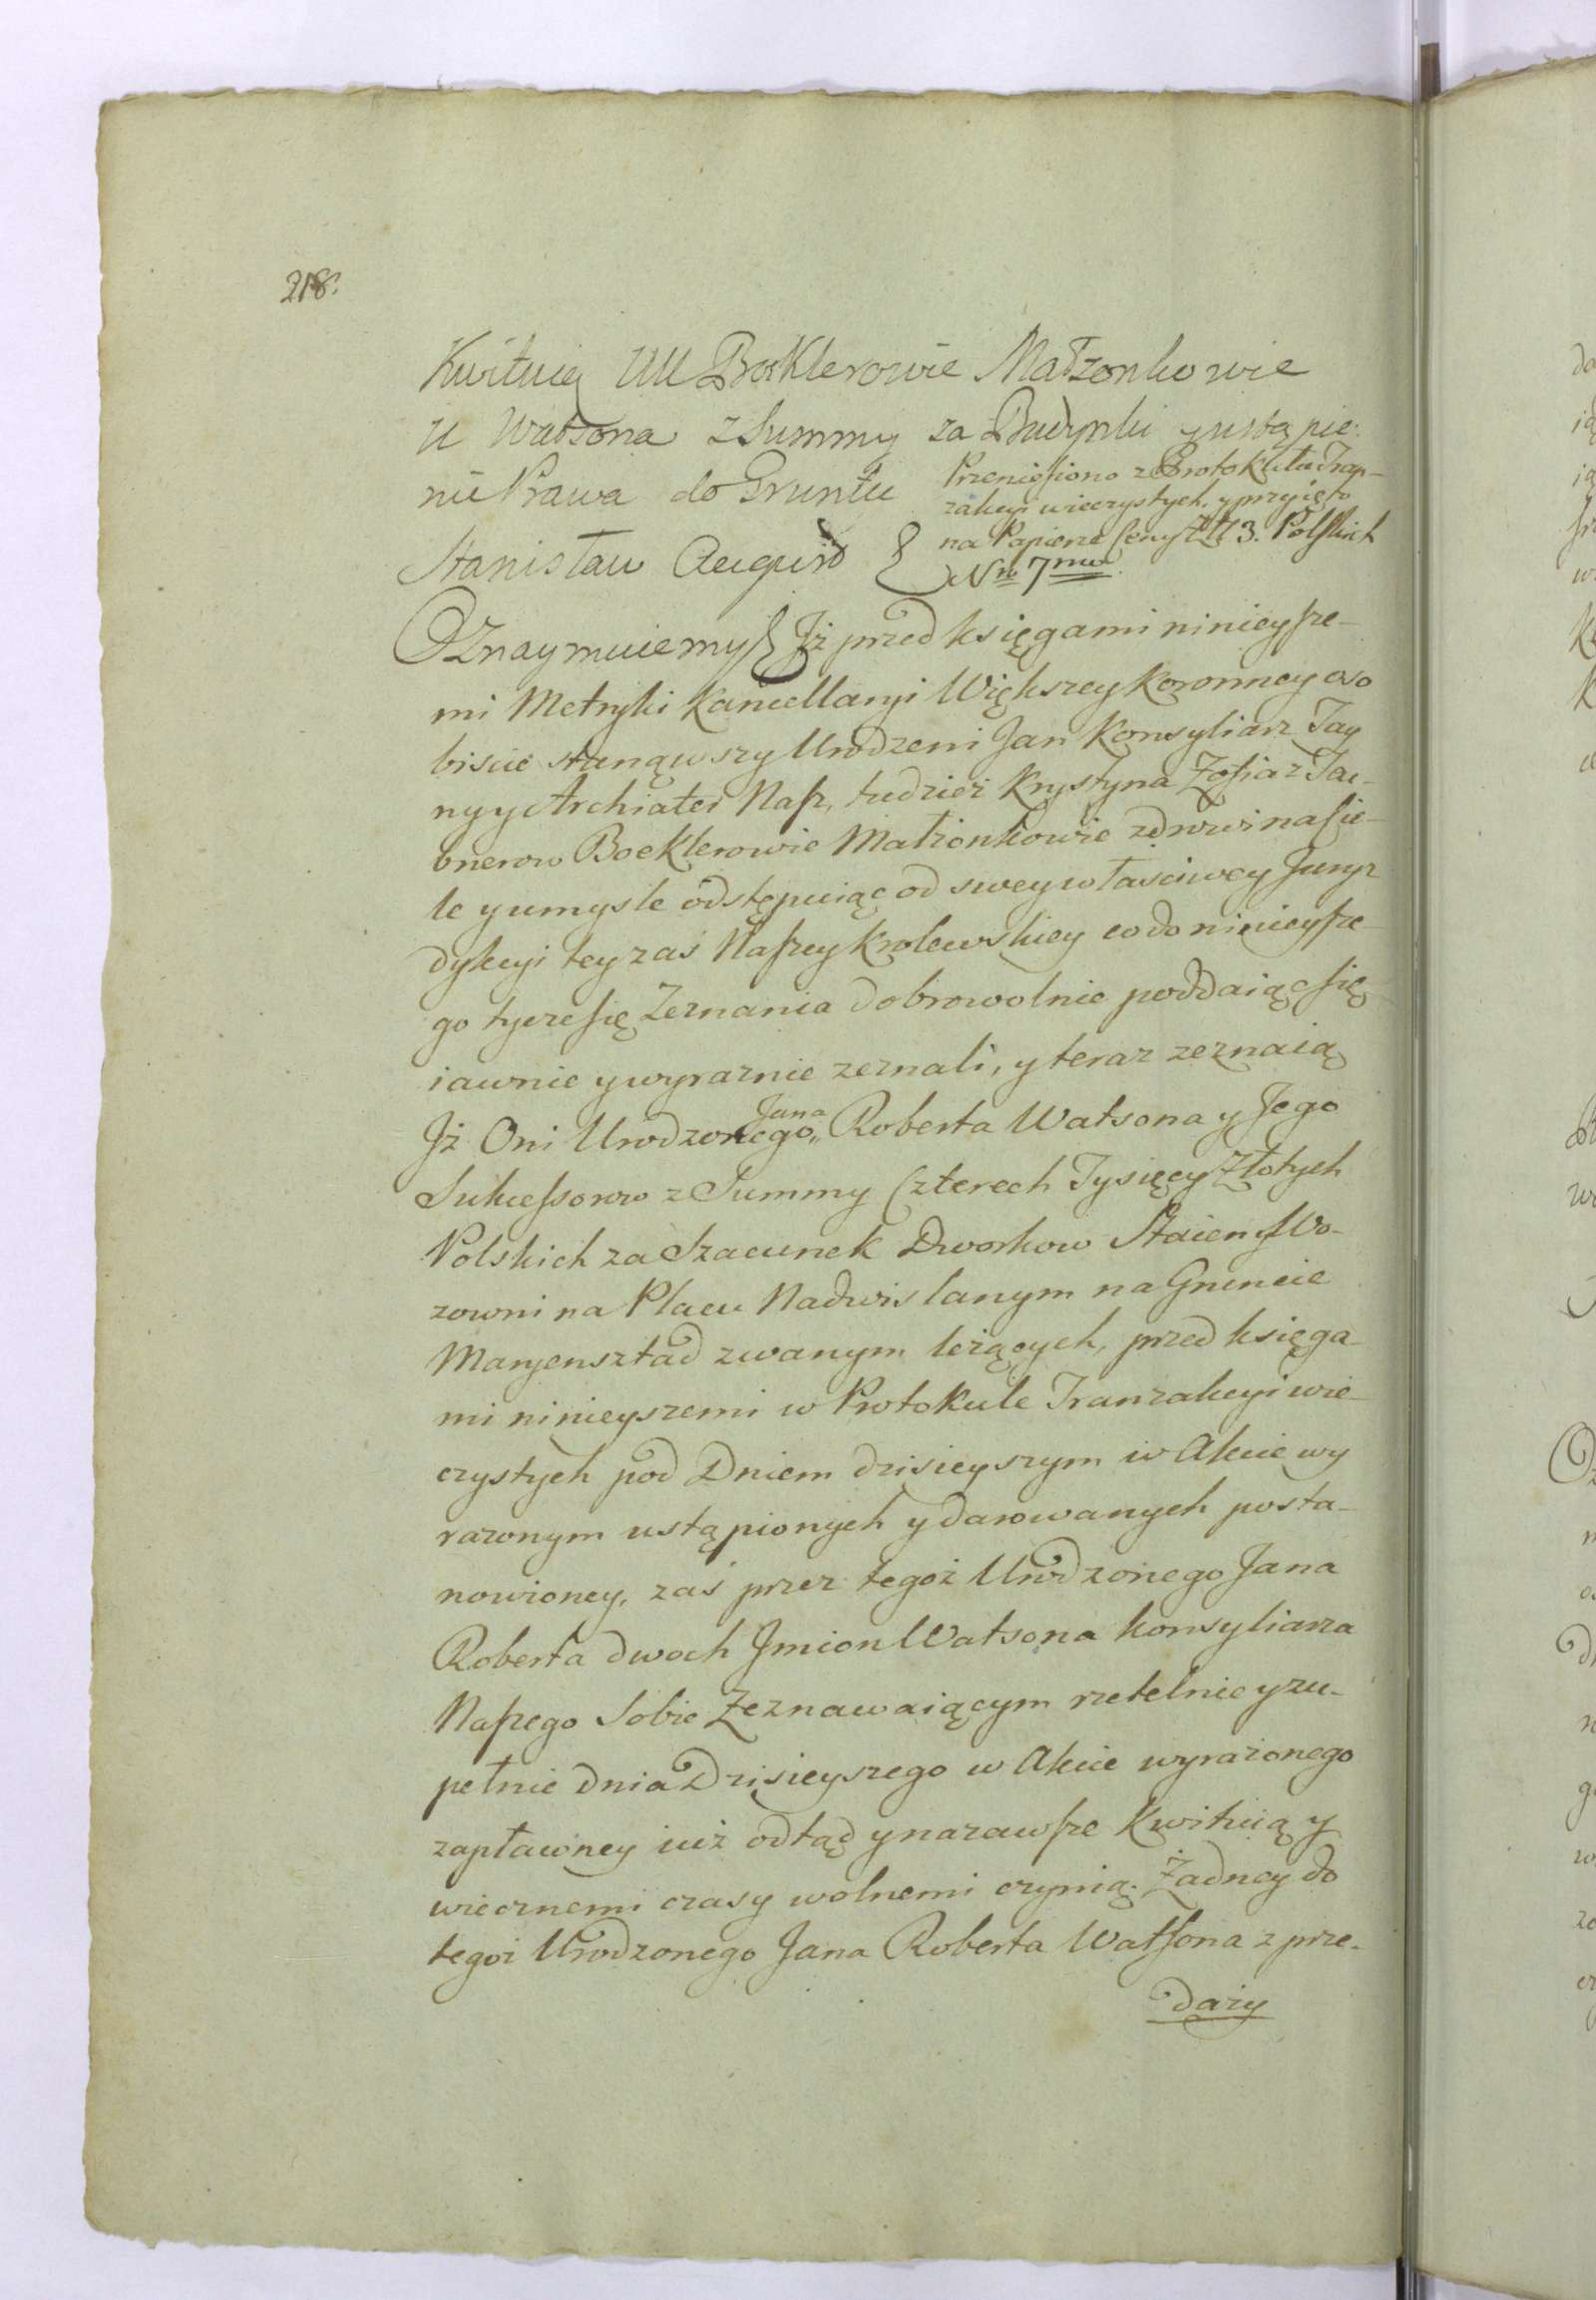 218.
Kwituią UU Boeklerowie Małzonkowie
U Watsona z Summy za Budynki y ustąpie:
nie Prawa do Gruntu
Przeniesiono z Protokułu Tran-
zakcyi wieczystych y przyięto
na Papierze Ceny Złł 3. Polskich
Nro 7mo
Stanisław August
Oznaymuiemy Jż przed księgami ninieysze-
mi Metryki Kancellaryi Większey Koronney oso
biscie stanąwszy Urodzeni Jan Konsyliarz Tay
ny y Archiater Nasz, tudzież Krystyna Zofia z Tae-
bnerow Boeklerowie Małżonkowie zdrowi na cie-
le y umysle odstępuiąc od swey właściwey Juryz
dykcyi tey zaś Naszey krolewskiey co do ninieysze-
go tycze się Zeznania dobrowolnie poddaiąc się
iawnie y wyraznie zeznali, y teraz zeznaią
Jż Oni Urodzonego Jana Roberta Watsona y Jego
Sukcessorow z Summy Czterech Tysięcy Złotych
Polskich za Szacunek Dworkow Staien y Wo-
zowni na Placu Nadwislanym na Gruncie
Maryensztad zwanym leżących, przed księga-
mi ninieyszemi w Protokule Tranzakcyi wie-
czystych pod Dniem dzisieyszym w Akcie wy
rażonym ustąpionych y darowanych posta-
nowioney, zaś przez tegoż Urodzonego Jana
Roberta dwoch Jmion Watsona Konsyliarza
Naszego Sobie Zeznawaiącym rzetelnie y zu-
pełnie dnia Dzisieyszego w Akcie wyrażonego
zapłaconey iuż odtąd y na zawsze Kwituią y
wiecznemi czasy wolnemi czynią. Żadney do
tegoż Urodzonego Jana Roberta Watsona z prze-
daży